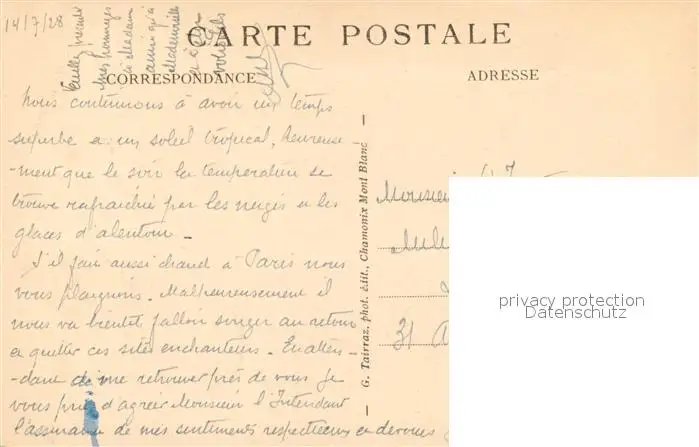 14/7/28
Veuillez présenter
mes hommages
à Madame
ainsi qu'à
Mademoiselle
CARTE POSTALE
CORRESPONDANCE
ADRESSE
Nous continuons à avoir un temps
superbe et un soleil tropical, heureuse-
-ment que le soir la température se
trouve rafraichie par les neiges et les
glaces d'alentour -
S'il fait aussi chaud à Paris nous
vous plaignons. Malheureusement il
nous va bientôt falloir songer au retour
et quitter ces sites enchanteurs. En atten-
-dant de me retrouver près de vous je
vous prie d'agréer Monsieur l'Intendant
l'assurance de mes sentiments respectueux et dévoués
G. Tairraz, phot. édit., Chamonix Mont Blanc
Monsieur
31
privacy protection
Datenschutz